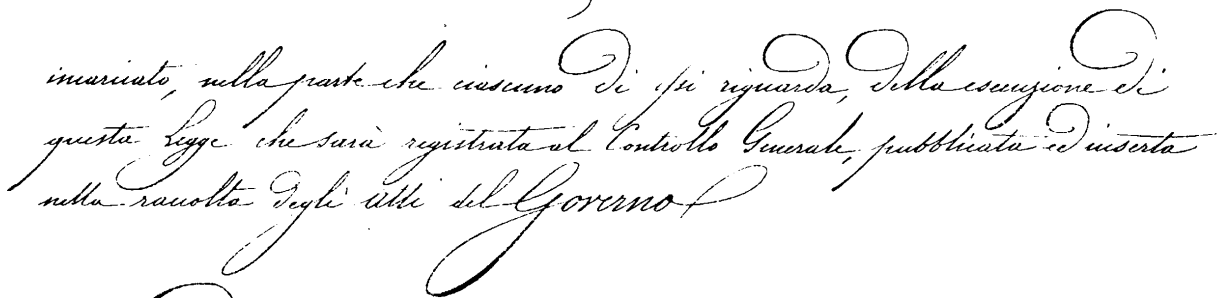 incaricato, nella parte che ciascuno di essi riguarda, della esecuzione di
questa Legge che sarà registrata al Controllo Generale, pubblicata ed inserta
nella raccolta degli atti del Governo